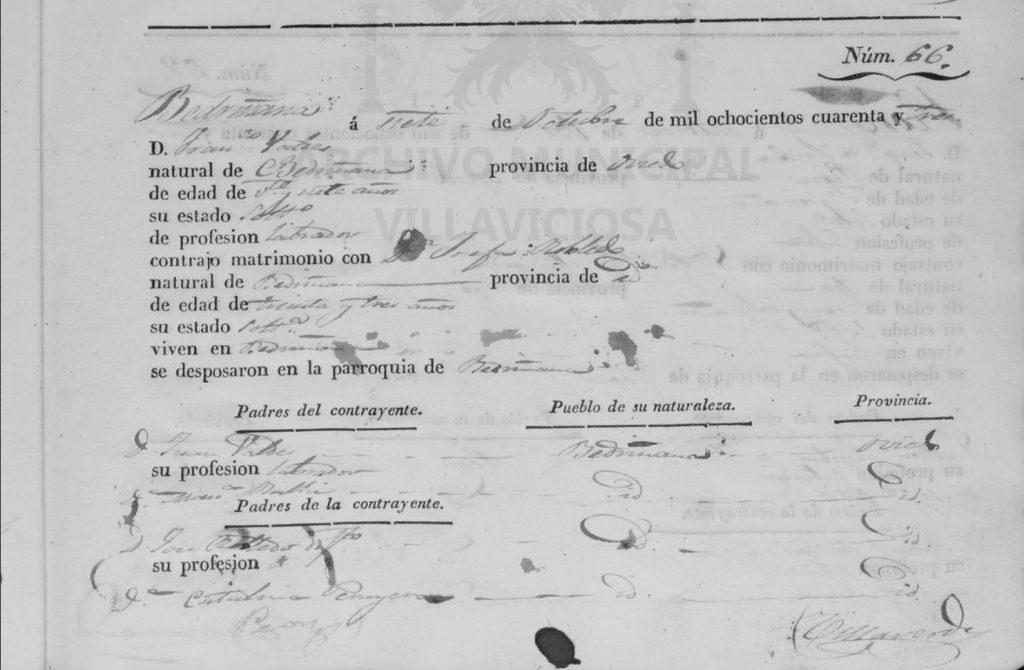 Núm. 66.
Bedriñana á siete de Octubre de mil ochocientos cuarenta y tres
D. Franco Valdes
natural de Bedriñana provincia de Ovdo
de edad de vte y siete años
su estado Solto
de profesion labrador
contrajo matrimonio con Da Josefa Robledo
natural de Bedriñana provincia de id
de edad de treinta y tres años
su estado Solta
viven en Bedriñana
se desposaron en la parroquia de Bedriñana
Padres del contrayente. Pueblo de su naturaleza. Provincia.
D. Juan Valdes Bedriñana Oviedo
su profesion labrador
id id.
Padres de la contrayente.
D. Jose Robledo id. id.
su profesion
Da Catalina id. id.
Villaverde
ARCHIVO MUNICIPAL
VILLAVICIOSA